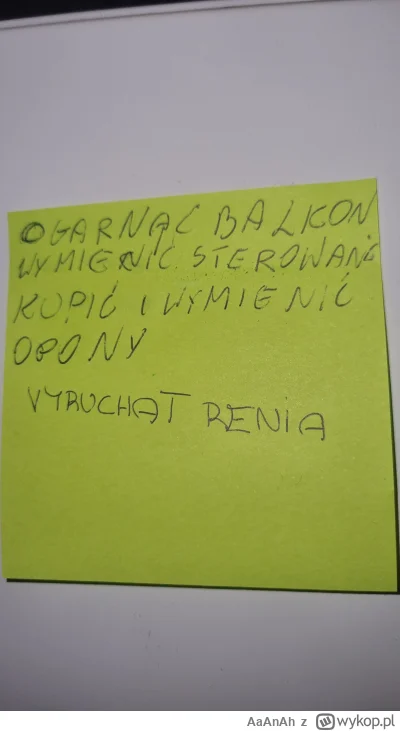 OGARNĄĆ BALKON
WYMIENIĆ STEROWANE
KUPIĆ I WYMIENIĆ
OPONY
VYRUCHAT RENIA
AaAnAh z wykop.pl